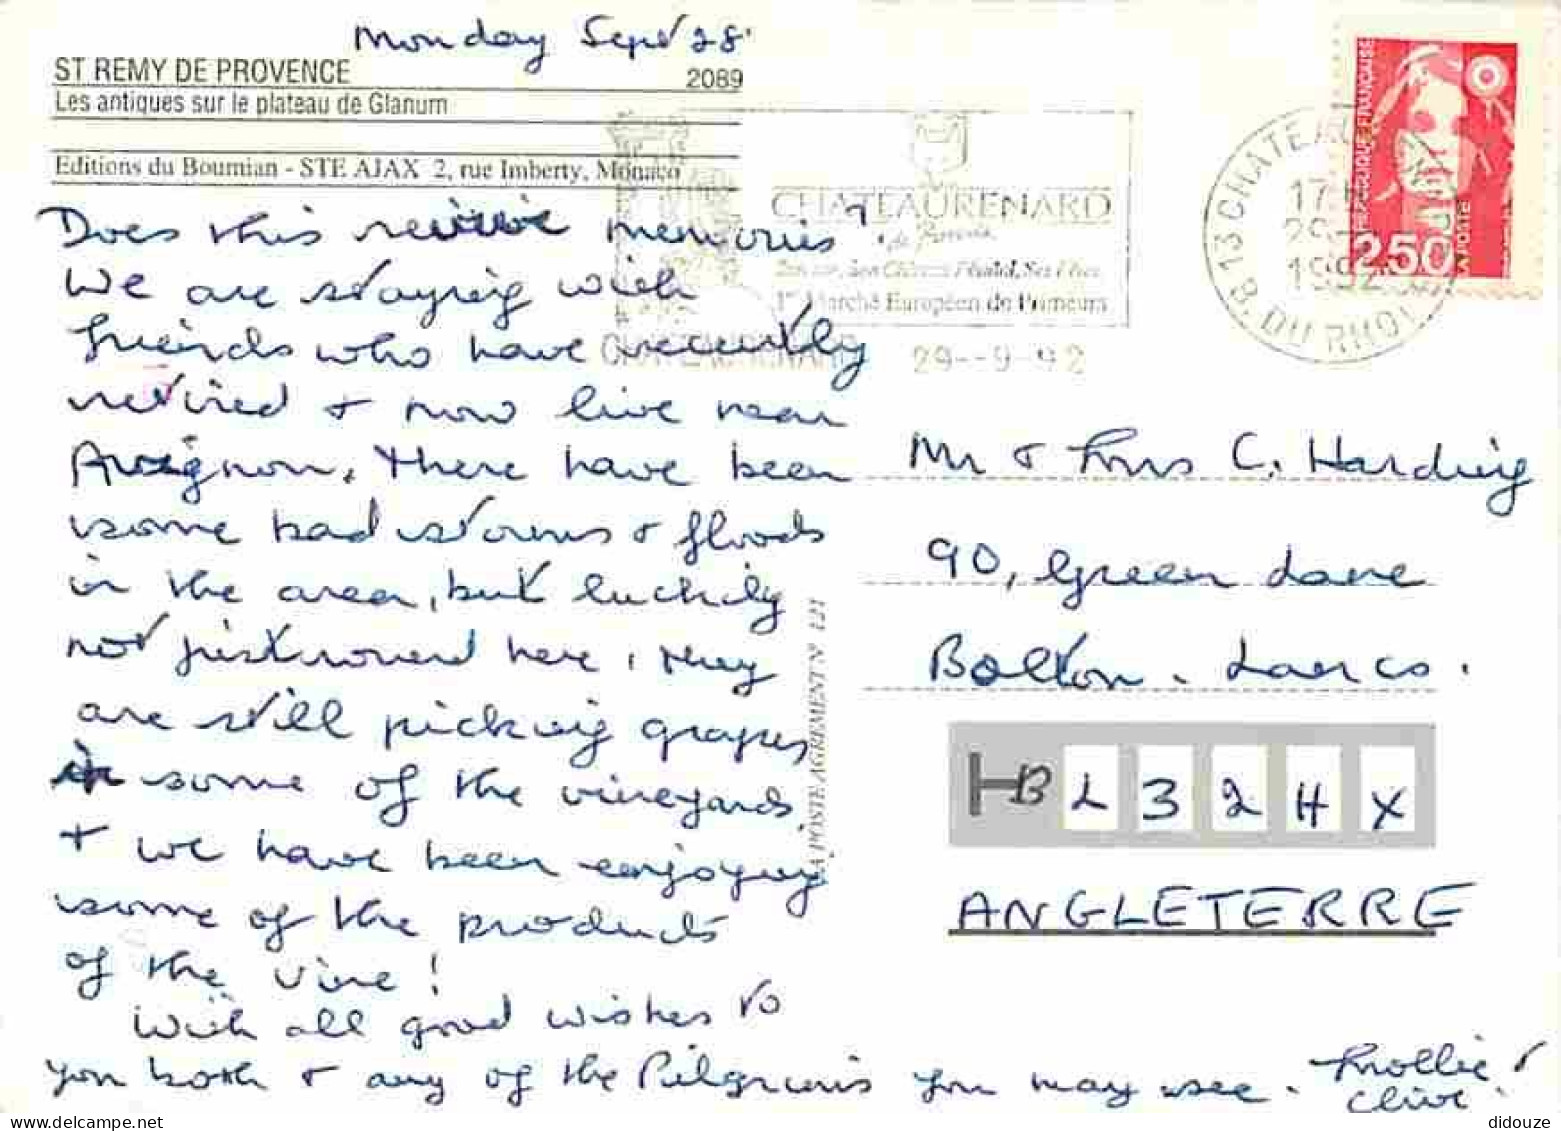 Monday Sept 28.
ST REMY DE PROVENCE
2089
Les antiques sur le plateau de Glanum
Editions du Boumian - STE AJAX 2, rue Imberty, Monaco
Does this revive memories?
We are staying with
friends who have recently
retired & now live near
Avignon. There have been
some bad storms & floods
in the area, but luckily
not just round here, they
are still picking grapes
in some of the vineyards
& we have been enjoying
some of the products
of the vine!
With all good wishes to
you both & any of the Pilgrims you may see.
Mollie &
Clive.
CHATEAURENARD
de Provence
1er Marché Européen de Primeurs
CHATEAURENARD 29--9-92
13 CHATEAURENARD
B. DU RHONE
17 H
29-
1992
REPUBLIQUE FRANÇAISE
2,50
LA POSTE
Mr & Mrs C. Harding
90, Green Lane
Bolton. Lancs.
B L 3 2 H X
ANGLETERRE
LA POSTE AGREMENT N° 121
didouze